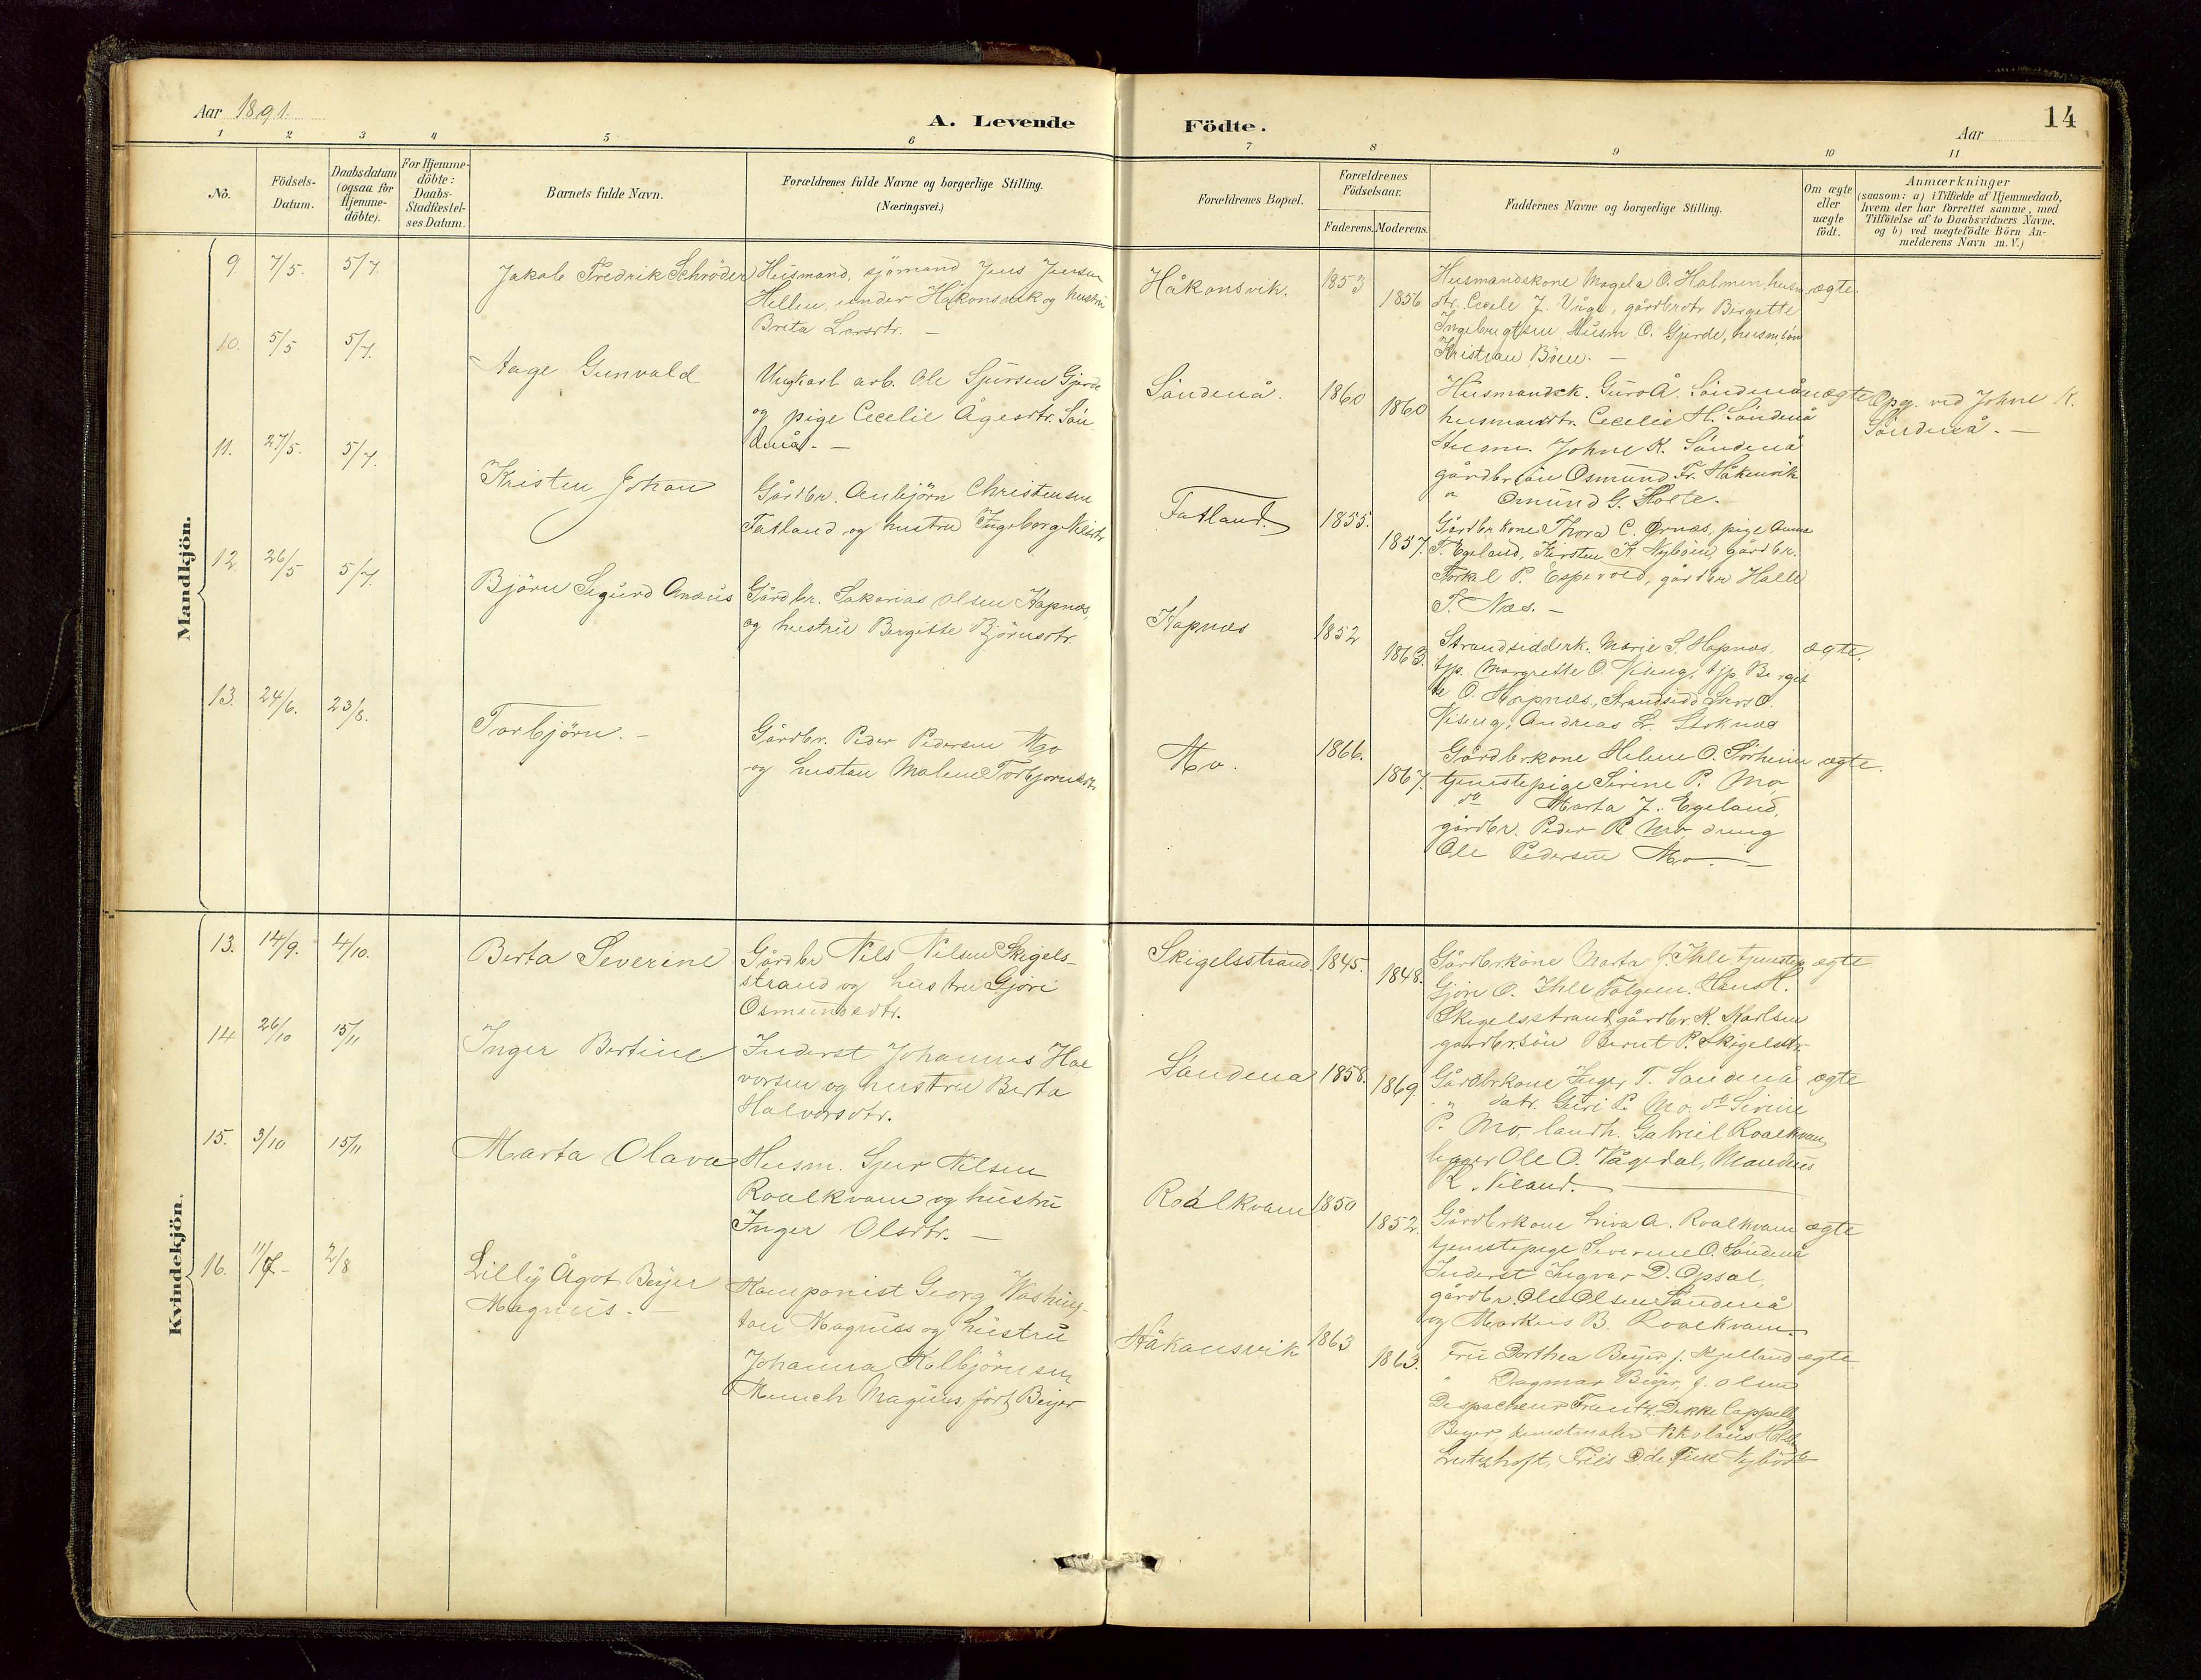 Aar 1891.
A. Levende Födte.
Aar
14
1 2 3 4 5 6 7 8 9 10 11
No.
Födsels-
Datum.
Daabsdatum
(ogsaa for
Hjemme-
döbte).
For Hjemme-
döbte:
Daabs-
Stadfæstel-
ses Datum.
Barnets fulde Navn.
Forældrenes fulde Navne og borgerlige Stilling.
(Næringsvei.)
Forældrenes Bopæl.
Forældrenes
Födselsaar.
Faderens. Moderens.
Faddernes Navne og borgerlige Stilling.
Om ægte
eller
uægte
födt.
Anmærkninger
(saasom: a) i Tilfælde af Hjemmedaab,
hvem der har forrettet samme, med
Tilföielse af to Daabsvidners Navne.
og b) ved uægtefödte Börn An-
melderens Navn m. V.)
Mandkjön.
9. 7/5. 5/7.
Jakob Fredrik Schröder
Husmand, sjömand Jens Jensen
Hellen, under Håkonsvik og hustru
Brita Larsdtr. –
Håkonsvik.
1853
1856
Husmandskone Magela O. Holmen, husm.
dtr. Cecele J. Våge, gårdbrdtr Birgitte
Ingebrigtsen Husm. O. Gjerde, husm.sön
Kristian Böen. –
ægte.
10. 5/5 5/7.
Aage Gunvald
Ungkarl arb. Ole Sjursen Gjerde
og pige Cecelie Ågesdtr. Sön
denå. –
Söndenå.
1860
1860
Husmandsk. Guro Å. Söndenå
husmandtr. Cecelie H. Söndenå
Husm. Johne K. Söndenå
gårdbrsön Osmund Fr. Håkonsvik
" Omund G. Holte. –
uægte
Opg. ved Johne K.
Söndenå. –
11. 27/5. 5/7.
Kristen Johan
Gårdbr. Anbjörn Christensen
Fatland og hustru Ingeborg Nilsdtr
Fatland.
1855.
1857.
Gårdbrkone Thora C. Ørnæs, pige Anna
T. Egeland, Kirsten K. Nyböen, gårdbr.
Torkel P. Espevold, gårdbr Halle
T. Næs. –
12. 26/5 5/7.
Björn Sigurd Anæus
Gårdbr. Sakarias Olsen Hapnæs,
og hustru Bergitte Björnsdtr.
Hapnæs
1852
1863.
Strandsidderk. Marie S. Hapnæs.
tjp. Margrethe O. Viseng, tjp Bergit
te O. Hapnæs, Strandsidd Lars O.
Viseng, Andreas L. Stoknæs
ægte.
13. 24/6. 23/8.
Torbjörn. –
Gårdbr. Peder Pedersen Mo
og hustru Malene Torbjornsdtr
Mo.
1866.
1867.
Gårdbrkone Helene O. Sörheim
tjenestepige Serine P. Mo,
do Marta J. Egeland,
gårdbr. Peder P. Mo, dreng
Ole Pedersen Mo. –
ægte.
Kvindekjön.
13. 14/9. 4/10.
Berta Severine
Gårdbr Nils Nilsen Skigels-
strand og hustru Gjöri
Osmundsdtr.
Skigelsstrand.
1845.
1848.
Gårdbrkone Marta J. Ihle tjenestep
Gjöri O. Ihle Folgem. Hans H.
Skigelsstrand, gårdbr. K. Karlsen
gårdbr.sön Bernt P. Skigelsstr.
ægte
14 26/10 15/11
Inger Bertine
Inderst Johannes Hal
vorsen og hustru Berta
Halvorsdtr.
Söndenå
1858.
1869.
Gårdbrkone Inger T. Söndenå
" datr. Guri P. Mo, do Sirine
P. Mo, landh. Gabriel Roalkvam,
Ole O. Vågedal, Mandius
K. Niland. –
ægte
15. 3/10 15/11
Marta Olava
Husm. Sjur Nilsen
Roalkvam og hustru
Inger Olsdtr. –
Roalkvam
1850
1852.
Gårdbrkone Siva A. Roalkvam
tjenestepige Severine O. Söndenå
Inderst Ingvar D. Opsal,
gårdbr. Ole Olsen Söndenå
og Markus B. Roalkvam.
ægte
16. 11/7 2/8
Lilly Ågot Beyer
Magnus. –
Komponist Georg Washing-
ton Magnus og hustru
Johanna Kolbjörnsen
Munch Magnus, född Beyer
Håkonsvik
1863
1863.
Fru Dorthea Beyer f. Kjelland
" Dagmar Beyer, f. Olsen
Despacheur Frantz Dekke Cappelle
Beyer, kunstmaler Nikolaus Holte
Friis D. de Fine Nyböde
ægte